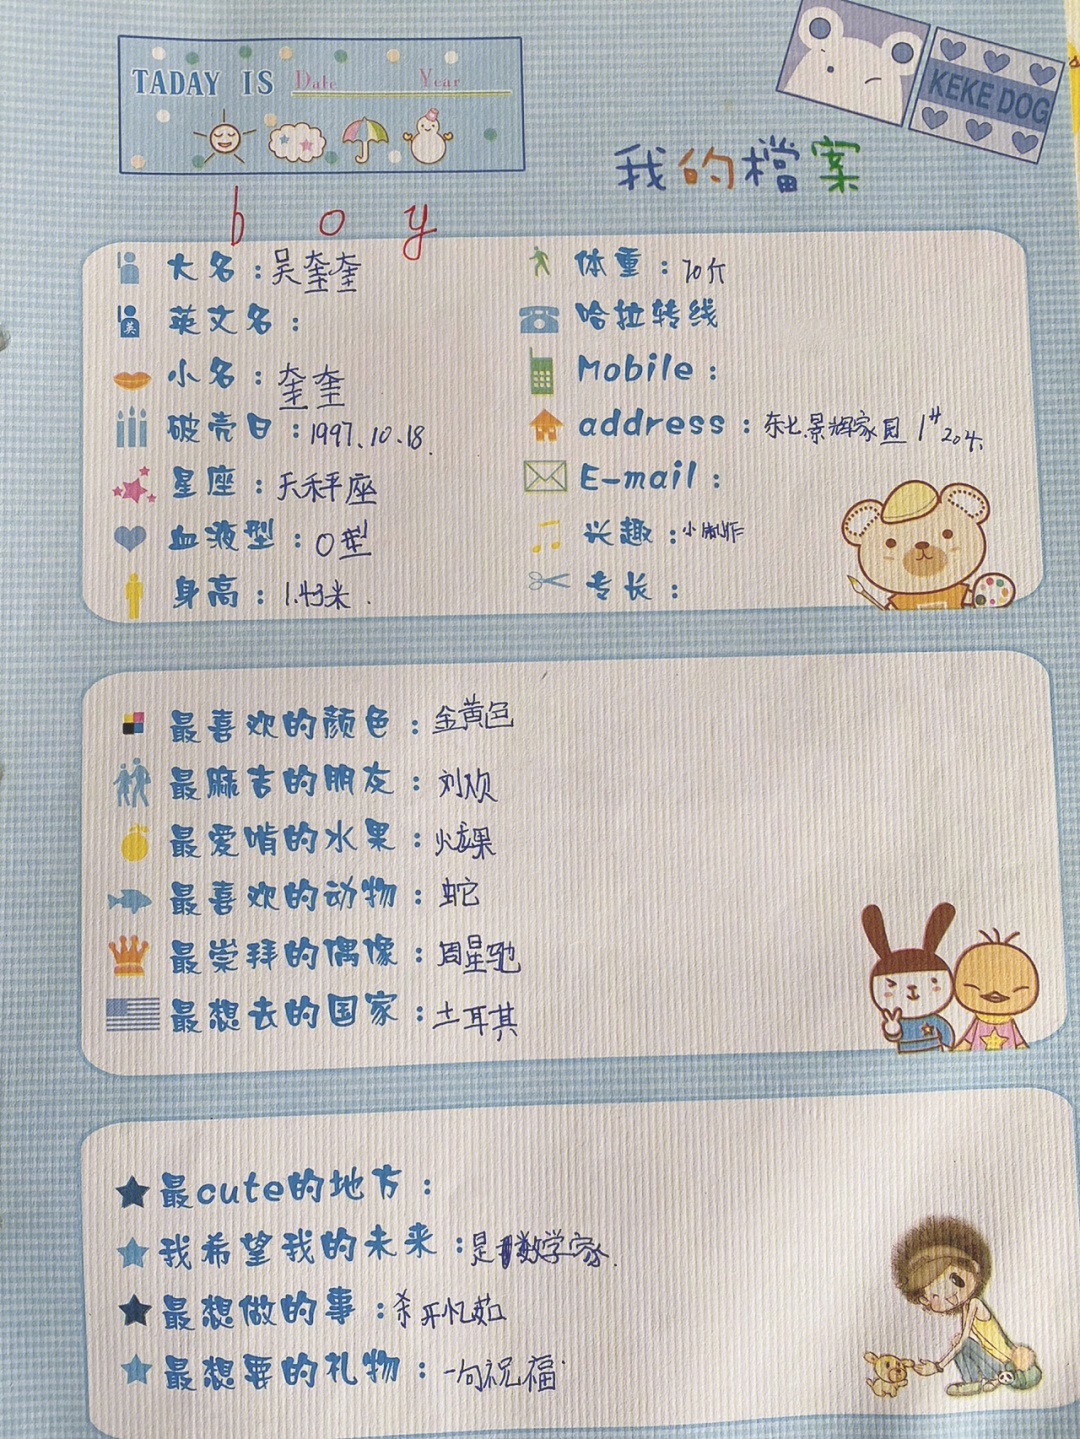 TADAY IS Date Year
KEKE DOG
我的檔案
boy
大名：吴奎奎
英文名：
英
小名：奎奎
破壳日：1997.10.18.
星座：天秤座
血液型：O型
身高：1.43米.
体重：70斤
哈拉转线
Mobile：
address：东七景辉家园 1# 204
E-mail：
兴趣：小制作
专长：
最喜欢的颜色：金黄色
最麻吉的朋友：刘欢
最爱啃的水果：火龙果
最喜欢的动物：蛇
最崇拜的偶像：周星驰
最想去的国家：土耳其
最cute的地方：
我希望我的未来：是数学家.
最想做的事：杀开忆茹
最想要的礼物：一句祝福